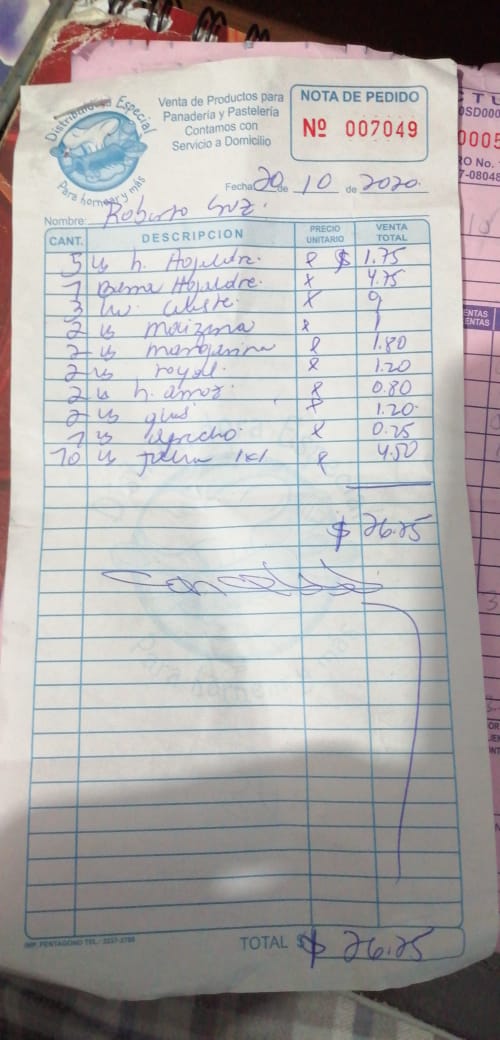 Distribuidora Especial
Para hornear y más
Venta de Productos para
Panadería y Pastelería
Contamos con
Servicio a Domicilio
NOTA DE PEDIDO
Nº 007049
Fecha 20 de 10 de 2020.
Nombre: Roberto
CANT. DESCRIPCION PRECIO UNITARIO VENTA TOTAL
5 lb h. Hojaldre. x $ 1.75
1 Hojaldre. x 4.75
3 x 9
2 lb maizena x 1
2 lb margarina x 1.80
2 lb royal. x 1.20
2 lb h. arroz. x 0.80
2 lb x 1.20
1 lb x 0.25
10 lb x 4.50
$ 26.25
Cancelado
IMP. PENTAGONO TEL.: 2237-2780
TOTAL $ 26.25